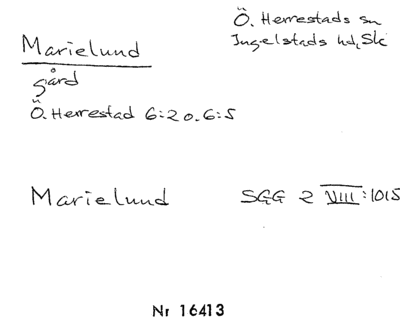 Ö. Herrestads sn
Ingelstads hd, Sk
Marielund
gård
Ö. Herrestad 6:2 o. 6:5
Marielund SGG 2 VIII:1015
Nr 16413